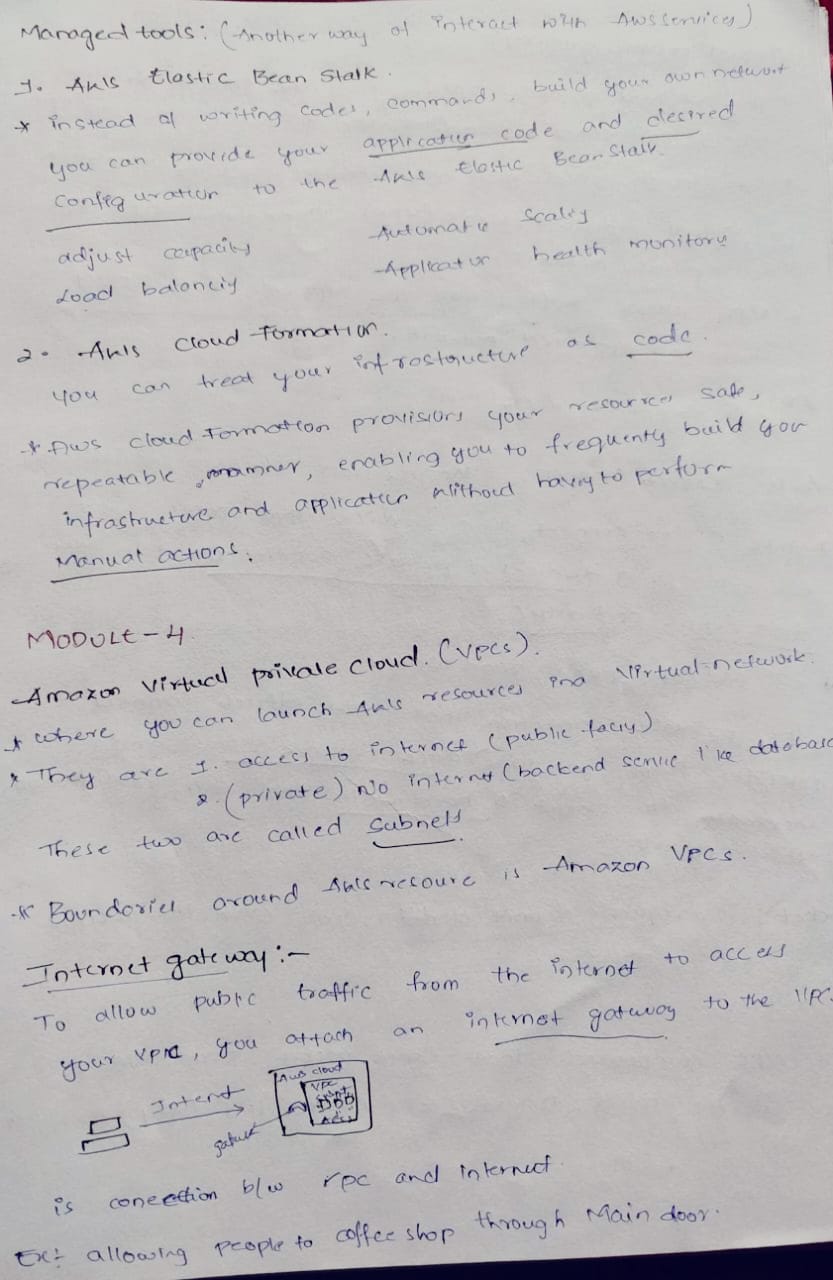 Managed tools: (Another way of interact with Aws services)
1. AWS Elastic Bean Stalk.
* instead of writing codes, commands, build your own network
you can provide your application code and desired
configuration to the AWS Elastic Bean Stalk.
adjust capacity Automatic Scaling
Load balancing Application health monitoring
2. AWS Cloud Formation.
You can treat your infrastructure as code.
* Aws cloud Formation provisions your resources safe,
repeatable, manner, enabling you to frequently build your
infrastructure and application without having to perform
Manual actions.
MODULE-4
Amazon Virtual private cloud. (VPCs).
* where you can launch AWS resources in a Virtual network.
* They are 1. access to internet (public facing)
2. (private) No internet (backend service like database
These two are called Subnets
* Boundaries around AWS resource is Amazon VPCs.
Internet gateway:-
To allow public traffic from the internet to access
your VPC, you attach an internet gateway to the VPC.
Aws cloud
VPC
Internet
is coneection b/w vpc and internet.
Ex: allowing people to coffee shop through Main door.